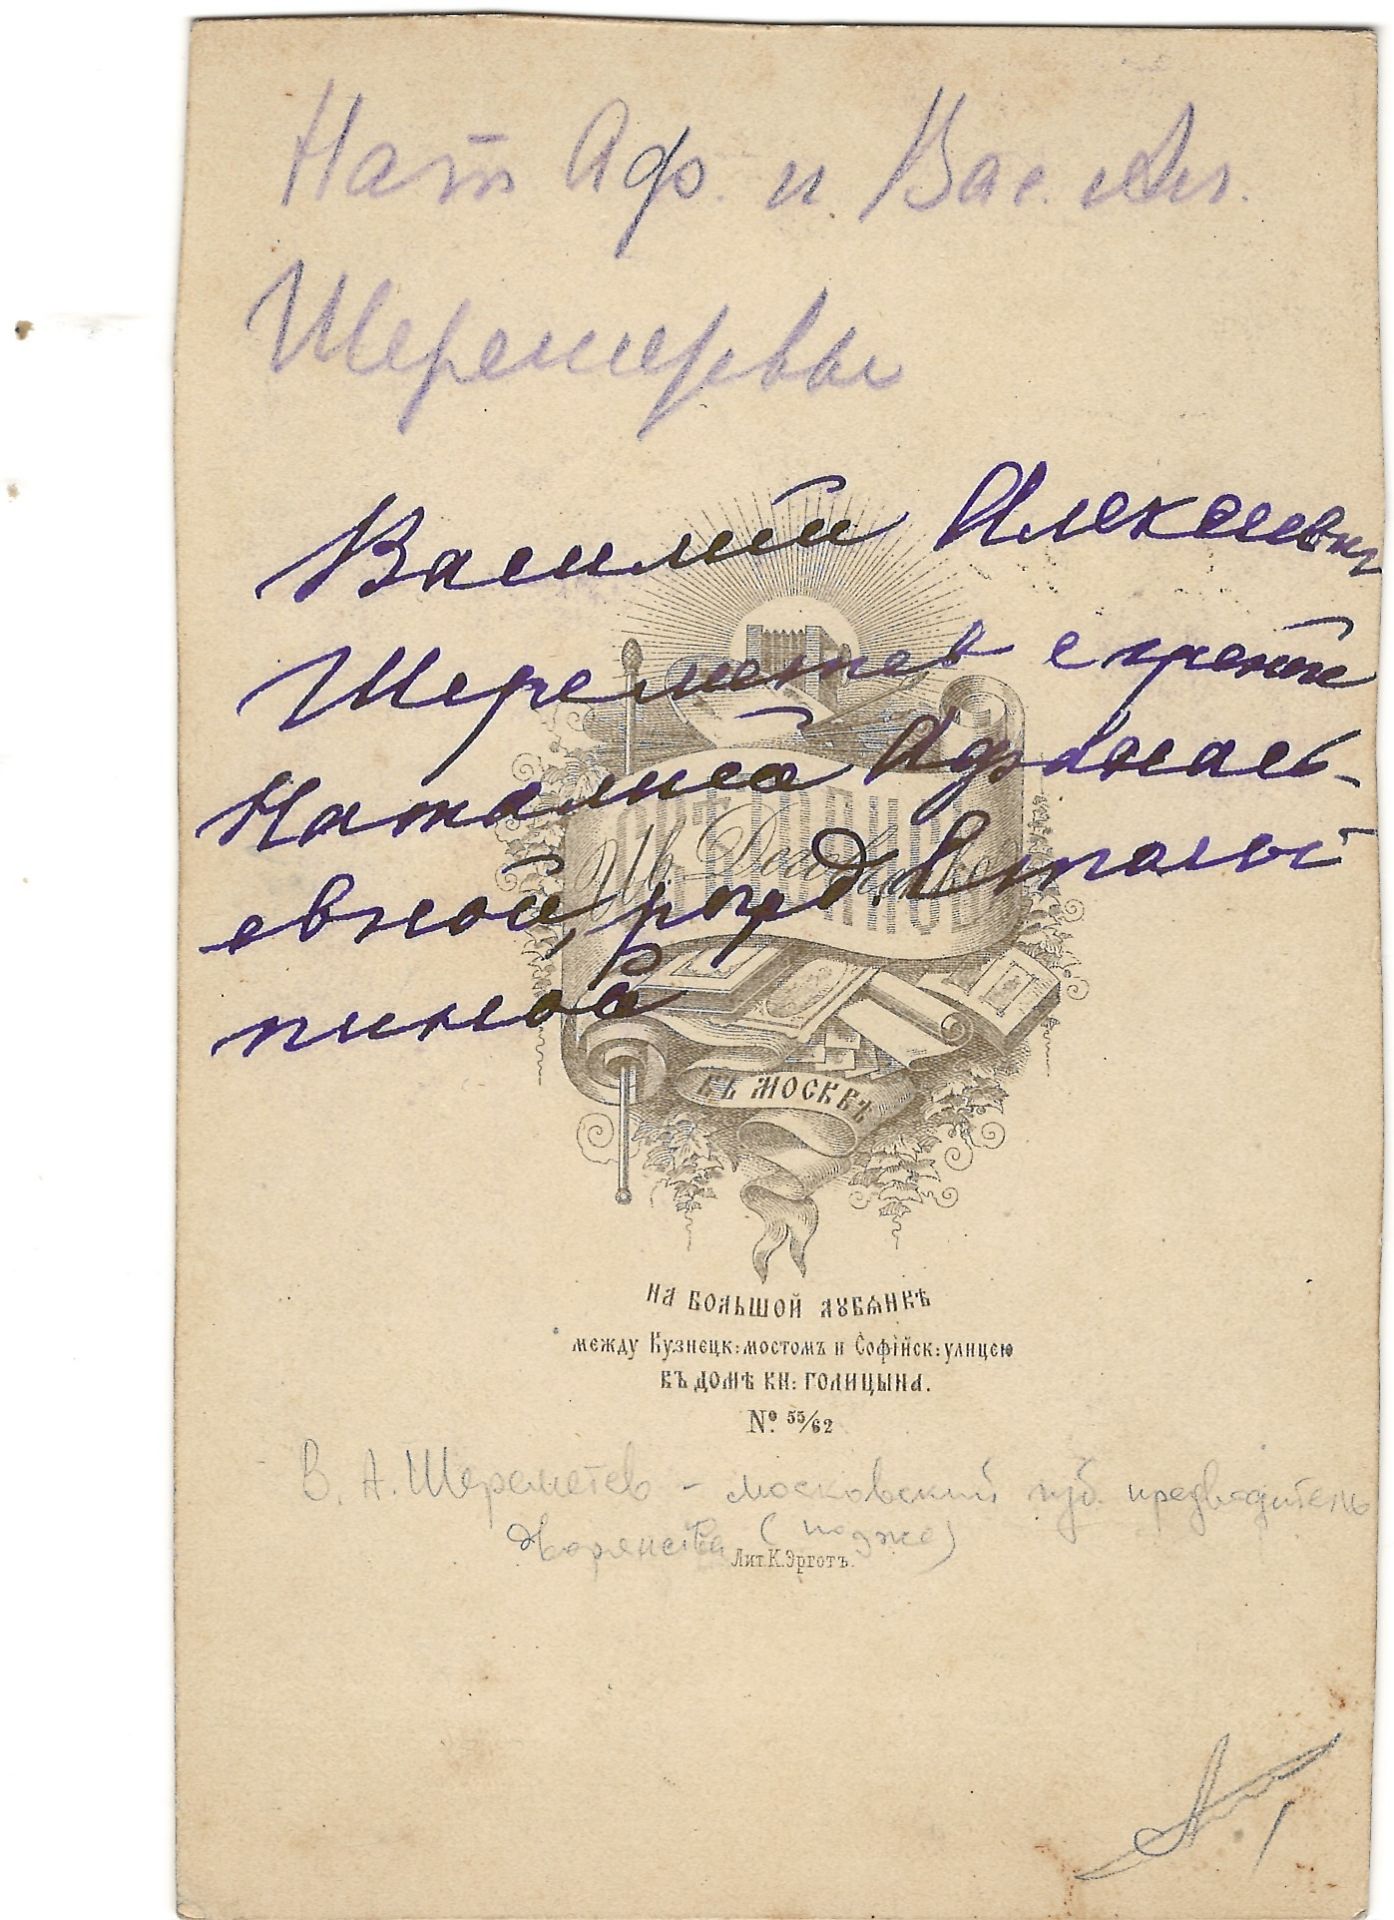 Нат Аф. и Вас. Ал.
Шереметевы
Василий Алексеевич
Шереметев с женой
Наталией Афанась-
евной, рожд. Столы-
пиной
Ив. Дьяговченко
ВЪ МОСКВѢ
НА БОЛЬШОЙ ЛУБЯНКѢ
между Кузнецк: мостомъ и Софійск: улицею
ВЪ ДОМѢ КН: ГОЛИЦЫНА.
№. 55/62
В. А. Шереметев - московский губ. предводитель
дворянства (позже)
Лит. К. Эрготъ.